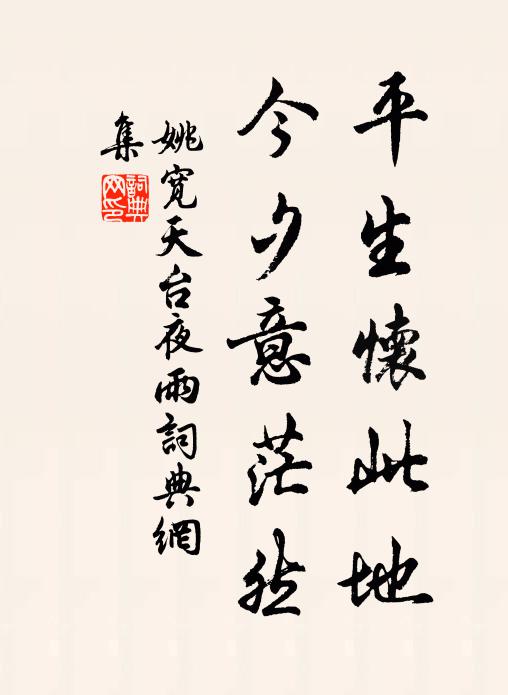 平生懷此地
今夕意茫然
姚寛天台夜雨詞典網
集
詞典
网印